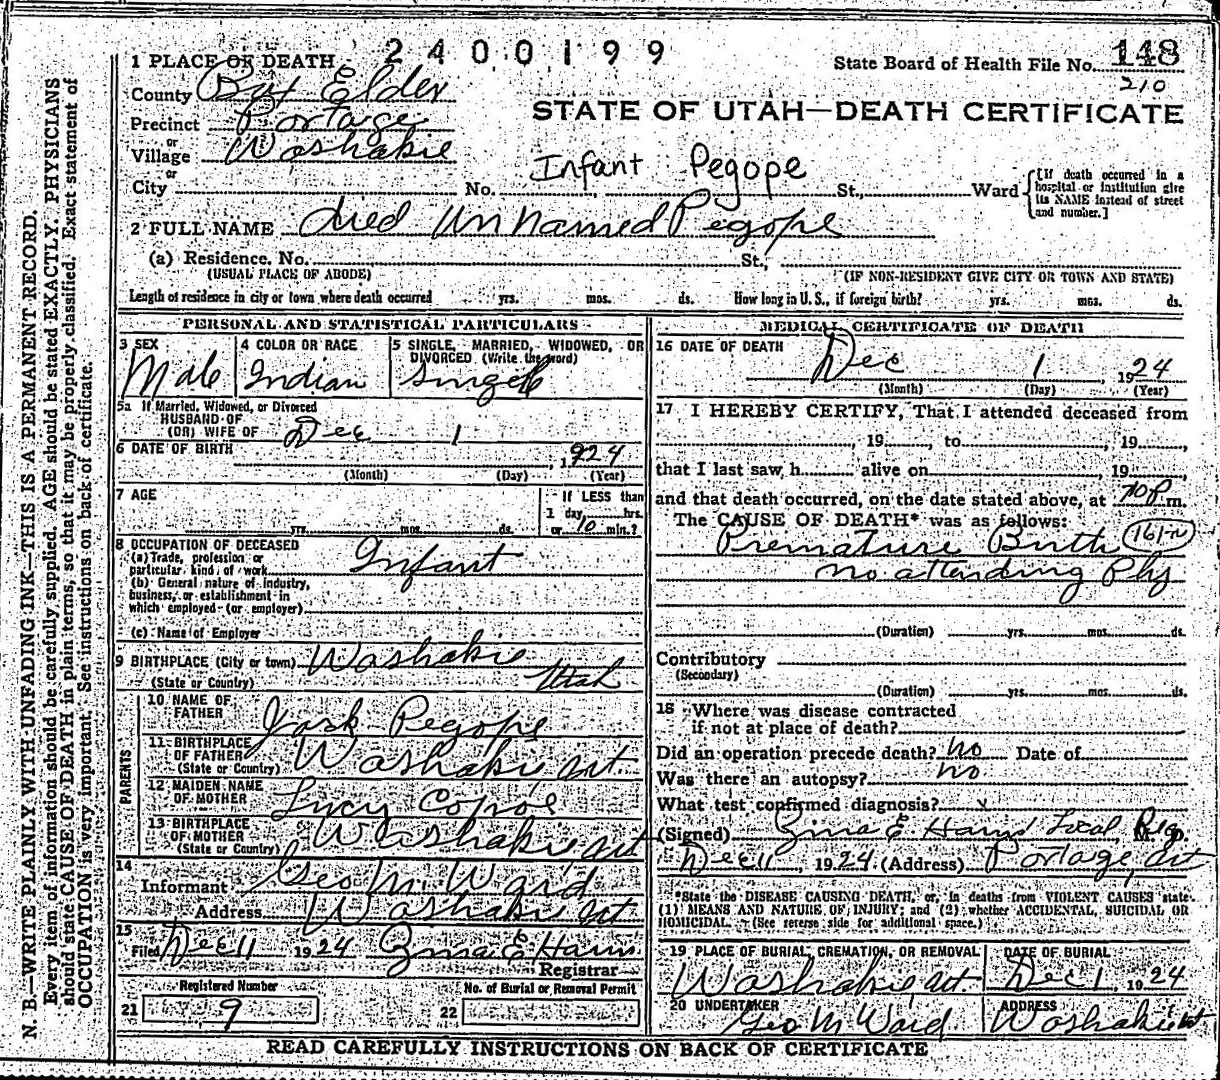 2400199
1 PLACE OF DEATH
State Board of Health File No. 148
210
County Box Elder
STATE OF UTAH—DEATH CERTIFICATE
Precinct Portage
or
Village Washakie
or
Infant Pegope
City No. St., Ward
[If death occurred in a hospital or institution give its NAME instead of street and number.]
2 FULL NAME died Unnamed Pegope
(a) Residence, No. St.,
(USUAL PLACE OF ABODE) (IF NON-RESIDENT GIVE CITY OR TOWN AND STATE)
Length of residence in city or town where death occurred yrs. mos. ds. How long in U. S., if foreign birth? yrs. mos. ds.
PERSONAL AND STATISTICAL PARTICULARS
3 SEX 4 COLOR OR RACE 5 SINGLE, MARRIED, WIDOWED, OR
DIVORCED (Write the word)
Male Indian Single
5a If Married, Widowed, or Divorced
HUSBAND OF
(OR) WIFE OF
6 DATE OF BIRTH Dec 1, 1924
(Month) (Day) (Year)
7 AGE If LESS than
1 day hrs.
yrs. mos. ds. or 10 min.?
8 OCCUPATION OF DECEASED
(a) Trade, profession or
particular kind of work Infant
(b) General nature of industry,
business, or establishment in
which employed (or employer)
(c) Name of Employer
9 BIRTHPLACE (City or town) Washakie
(State or Country) Utah
PARENTS
10 NAME OF
FATHER Pegope
11 BIRTHPLACE
OF FATHER
(State or Country) Washakie, Ut
12 MAIDEN NAME
OF MOTHER Lucy
13 BIRTHPLACE
OF MOTHER
(State or Country) Washakie Ut
14
Informant Geo M. Ward
Address Washakie Ut
15
Filed Dec 11 1924 Zina E
Registrar
Registered Number No. of Burial or Removal Permit
21 9 22
MEDICAL CERTIFICATE OF DEATH
16 DATE OF DEATH
Dec 1, 1924
(Month) (Day) (Year)
17 I HEREBY CERTIFY, That I attended deceased from
, 19 , to , 19 ,
that I last saw h alive on 19
and that death occurred, on the date stated above, at m.
The CAUSE OF DEATH* was as follows:
Premature Birth
no attending Phy
(Duration) yrs. mos. ds.
Contributory
(Secondary)
(Duration) yrs. mos. ds.
18 Where was disease contracted
if not at place of death?
Did an operation precede death? no Date of
Was there an autopsy? no
What test confirmed diagnosis? x
(Signed) Zina E Local Reg.
Dec 11, 1924 (Address) Portage, Ut
*State the DISEASE CAUSING DEATH, or, in deaths from VIOLENT CAUSES state
(1) MEANS AND NATURE OF INJURY; and (2) whether ACCIDENTAL, SUICIDAL OR
HOMICIDAL. (See reverse side for additional space.)
19 PLACE OF BURIAL, CREMATION, OR REMOVAL DATE OF BURIAL
Washakie, Ut. Dec 1, 1924
20 UNDERTAKER ADDRESS
Geo M Ward Washakie Ut
READ CAREFULLY INSTRUCTIONS ON BACK OF CERTIFICATE
N. B.—WRITE PLAINLY WITH UNFADING INK—THIS IS A PERMANENT RECORD.
Every item of information should be carefully supplied. AGE should be stated EXACTLY. PHYSICIANS
should state CAUSE OF DEATH in plain terms, so that it may be properly classified. Exact statement of
OCCUPATION is very important. See instructions on back of certificate.